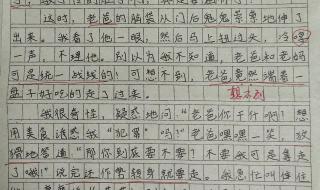 这时，老爸的脑袋从门后鬼鬼祟祟地伸了
出来。我看了他一眼，然后马上转过头，冷哼
一声，不理他。别以为我不知道，老爸和老妈
可是统一战线的！可想不到，老爸竟然端着一
盘子好吃的走了过来。
想不到
我很奇怪，疑惑地问："老爸你干什么？想
用美食诱惑我"犯罪"吗？"老爸嘿嘿一笑，
滑地答道："那你到底要不要？不要我可是靠走
了哦！"说完还作势转身就要走。我急忙叫住